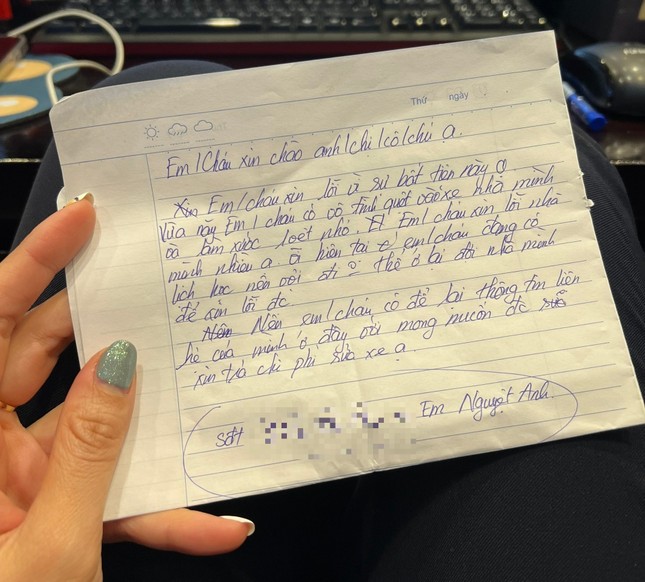 Thứ ngày
Em/Cháu xin chào anh/chị/cô/chú ạ.
Em/cháu xin lỗi vì sự bất tiện này ạ
Vừa nay Em/cháu có vô tình quệt vào xe nhà mình
và làm xước loét nhỏ. Em/cháu xin lỗi nhà
mình nhiều ạ Vì hiện tại em/cháu đang có
lịch học nên với thể ở lại đợi nhà mình
để xin lỗi đc
Nên em/cháu có để lại thông tin liên
hệ của mình ở đây với mong muốn đc
xin trả chi phí sửa xe ạ.
Sđt Em Nguyệt Anh